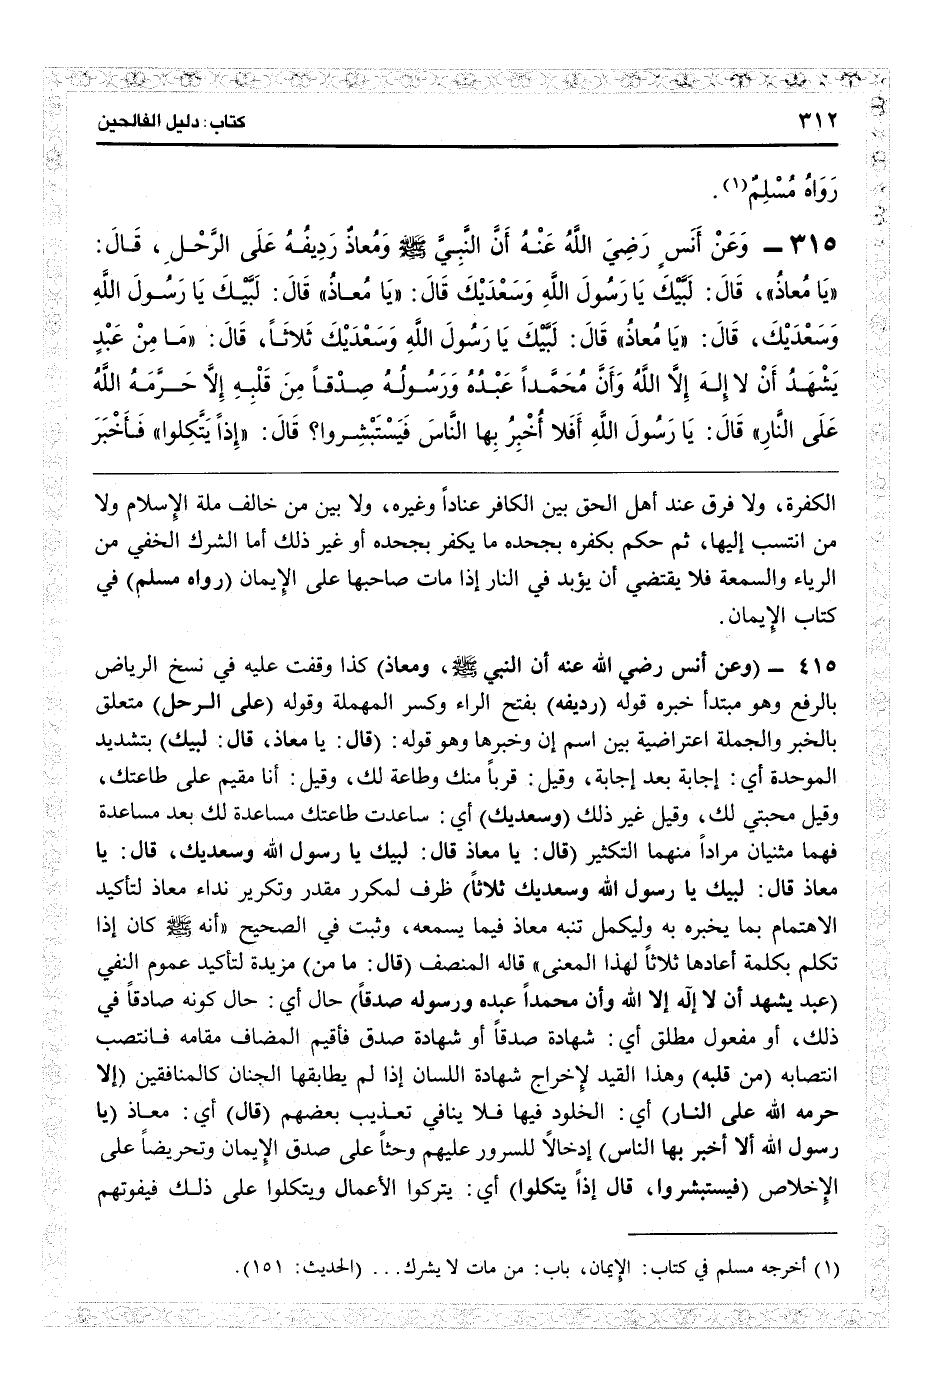 ٣١٢
كتاب: دليل الفالحين
رَوَاهُ مُسْلِمٌ(١).
٣١٥ ــ وَعَنْ أَنَسٍ رَضِيَ اللَّهُ عَنْهُ أَنَّ النَّبِيَّ ﷺ وَمُعاذٌ رَدِيفُهُ عَلَى الرَّحْلِ، قَالَ:
«يَا مُعاذُ»، قَالَ: لَبَّيْكَ يَا رَسُولَ اللَّهِ وَسَعْدَيْكَ قَالَ: «يَا مُعاذُ» قَالَ: لَبَّيْكَ يَا رَسُولَ اللَّهِ
وَسَعْدَيْكَ، قَالَ: «يَا مُعاذُ» قَالَ: لَبَّيْكَ يَا رَسُولَ اللَّهِ وَسَعْدَيْكَ ثَلاثَاً، قَالَ: «مَا مِنْ عَبْدٍ
يَشْهَدُ أَنْ لا إِلهَ إِلَّا اللَّهُ وَأَنَّ مُحَمَّداً عَبْدُهُ وَرَسُولُهُ صِدْقاً مِنَ قَلْبِهِ إِلَّا حَرَّمَهُ اللَّهُ
عَلَى النَّارِ» قَالَ: يَا رَسُولَ اللَّهِ أَفَلا أُخْبِرُ بِها النَّاسَ فَيَسْتَبْشِروا؟ قَالَ: «إِذاً يَتَّكِلوا» فَأَخْبَرَ
الكفرة، ولا فرق عند أهل الحق بين الكافر عناداً وغيره، ولا بين من خالف ملة الإِسلام ولا
من انتسب إليها، ثم حكم بكفره بجحده ما يكفر بجحده أو غير ذلك أما الشرك الخفي من
الرياء والسمعة فلا يقتضي أن يؤبد في النار إذا مات صاحبها على الإِيمان (رواه مسلم) في
كتاب الإِيمان.
٤١٥ ــ (وعن أنس رضي الله عنه أن النبي ﷺ، ومعاذ) كذا وقفت عليه في نسخ الرياض
بالرفع وهو مبتدأ خبره قوله (رديفه) بفتح الراء وكسر المهملة وقوله (على الرحل) متعلق
بالخبر والجملة اعتراضية بين اسم إن وخبرها وهو قوله: (قال: يا معاذ، قال: لبيك) بتشديد
الموحدة أي: إجابة بعد إجابة، وقيل: قرباً منك وطاعة لك، وقيل: أنا مقيم على طاعتك،
وقيل محبتي لك، وقيل غير ذلك (وسعديك) أي: ساعدت طاعتك مساعدة لك بعد مساعدة
فهما مثنيان مراداً منهما التكثير (قال: يا معاذ قال: لبيك يا رسول الله وسعديك، قال: يا
معاذ قال: لبيك يا رسول الله وسعديك ثلاثاً) ظرف لمكرر مقدر وتكرير نداء معاذ لتأكيد
الاهتمام بما يخبره به وليكمل تنبه معاذ فيما يسمعه، وثبت في الصحيح «أنه ﷺ كان إذا
تكلم بكلمة أعادها ثلاثاً لهذا المعنى» قاله المنصف (قال: ما من) مزيدة لتأكيد عموم النفي
(عبد يشهد أن لا إله إلا الله وأن محمداً عبده ورسوله صدقاً) حال أي: حال كونه صادقاً في
ذلك، أو مفعول مطلق أي: شهادة صدقاً أو شهادة صدق فأقيم المضاف مقامه فانتصب
انتصابه (من قلبه) وهذا القيد لإخراج شهادة اللسان إذا لم يطابقها الجنان كالمنافقين (إلا
حرمه الله على النار) أي: الخلود فيها فلا ينافي تعذيب بعضهم (قال) أي: معاذ (يا
رسول الله ألا أخبر بها الناس) إدخالاً للسرور عليهم وحثاً على صدق الإِيمان وتحريضاً على
الإِخلاص (فيستبشروا، قال إذاً يتكلوا) أي: يتركوا الأعمال ويتكلوا على ذلك فيفوتهم
(١) أخرجه مسلم في كتاب: الإِيمان، باب: من مات لا يشرك... (الحديث: ١٥١).